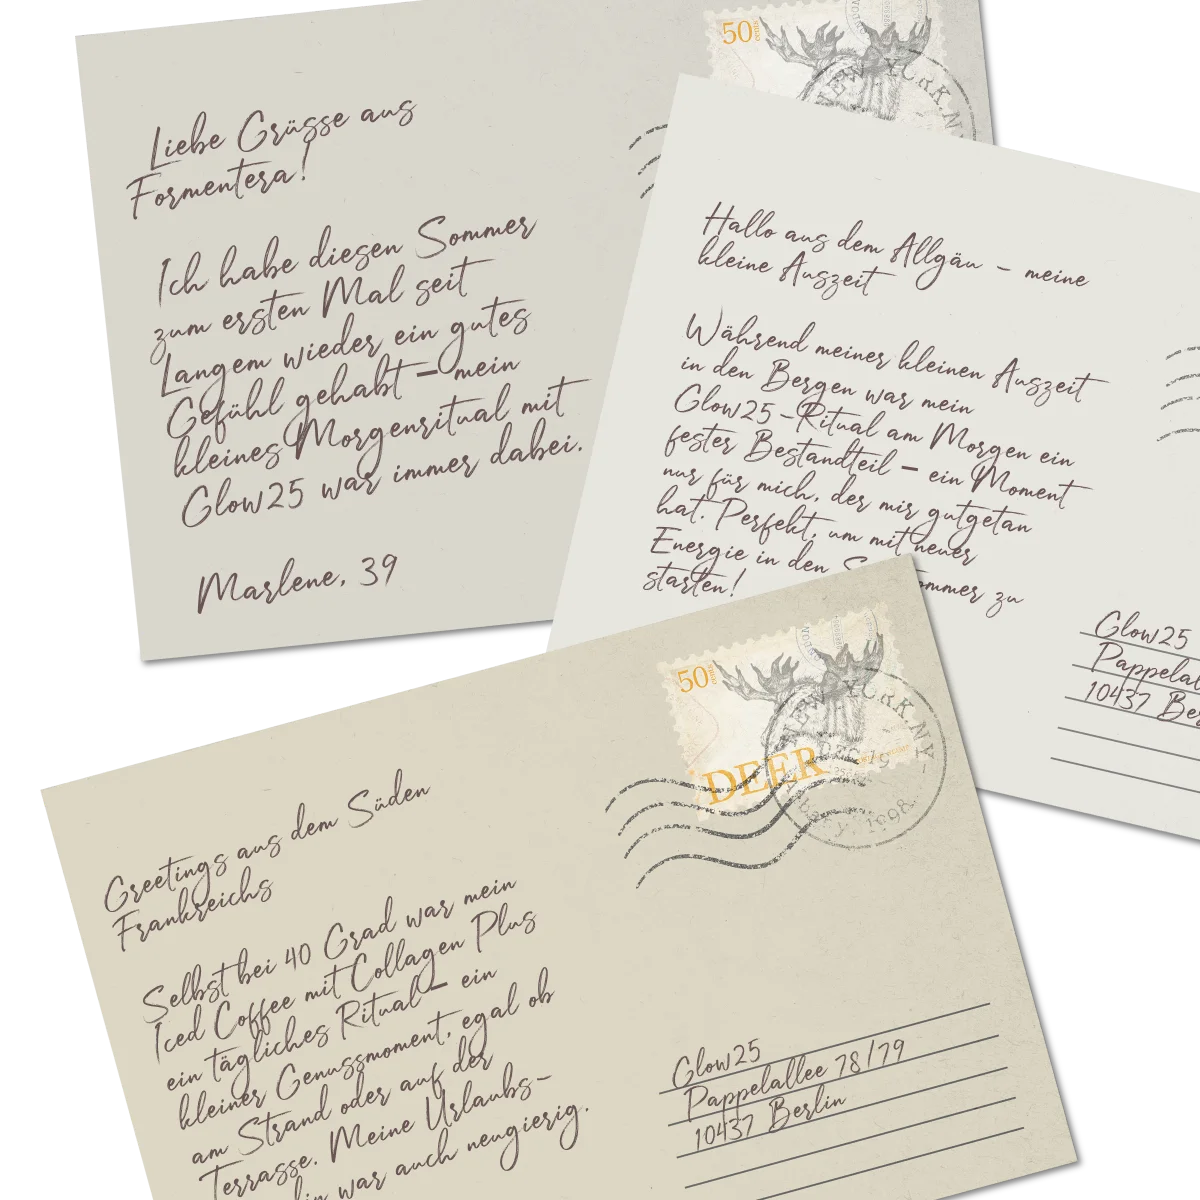 Liebe Grüsse aus
Formentera!
Ich habe diesen Sommer
zum ersten Mal seit
Langem wieder ein gutes
Gefühl gehabt – mein
kleines Morgenritual mit
Glow25 war immer dabei.
Marlene, 39
50
cents
NEW YORK.N
Hallo aus dem Allgäu – meine
kleine Auszeit
Während meiner kleinen Auszeit
in den Bergen war mein
Glow25-Ritual am Morgen ein
fester Bestandteil – ein Moment
nur für mich, der mir gutgetan
hat. Perfekt, um mit neuer
Energie in den S ommer zu
starten!
Glow25
Pappelal
10437 Ber
Greetings aus dem Süden
Frankreichs
Selbst bei 40 Grad war mein
Iced Coffee mit Collagen Plus
ein tägliches Ritual – ein
kleiner Genussmoment, egal ob
am Strand oder auf der
Terrasse. Meine Urlaubs-
in war auch neugierig.
50
cents
DEER
NEW YORK.NY
1998
Glow25
Pappelallee 78/79
10437 Berlin